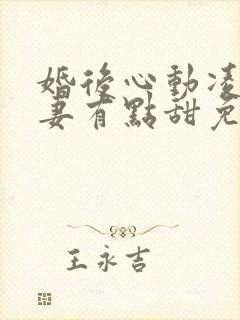 婚後心動凌
妻有點甜免
王永吉